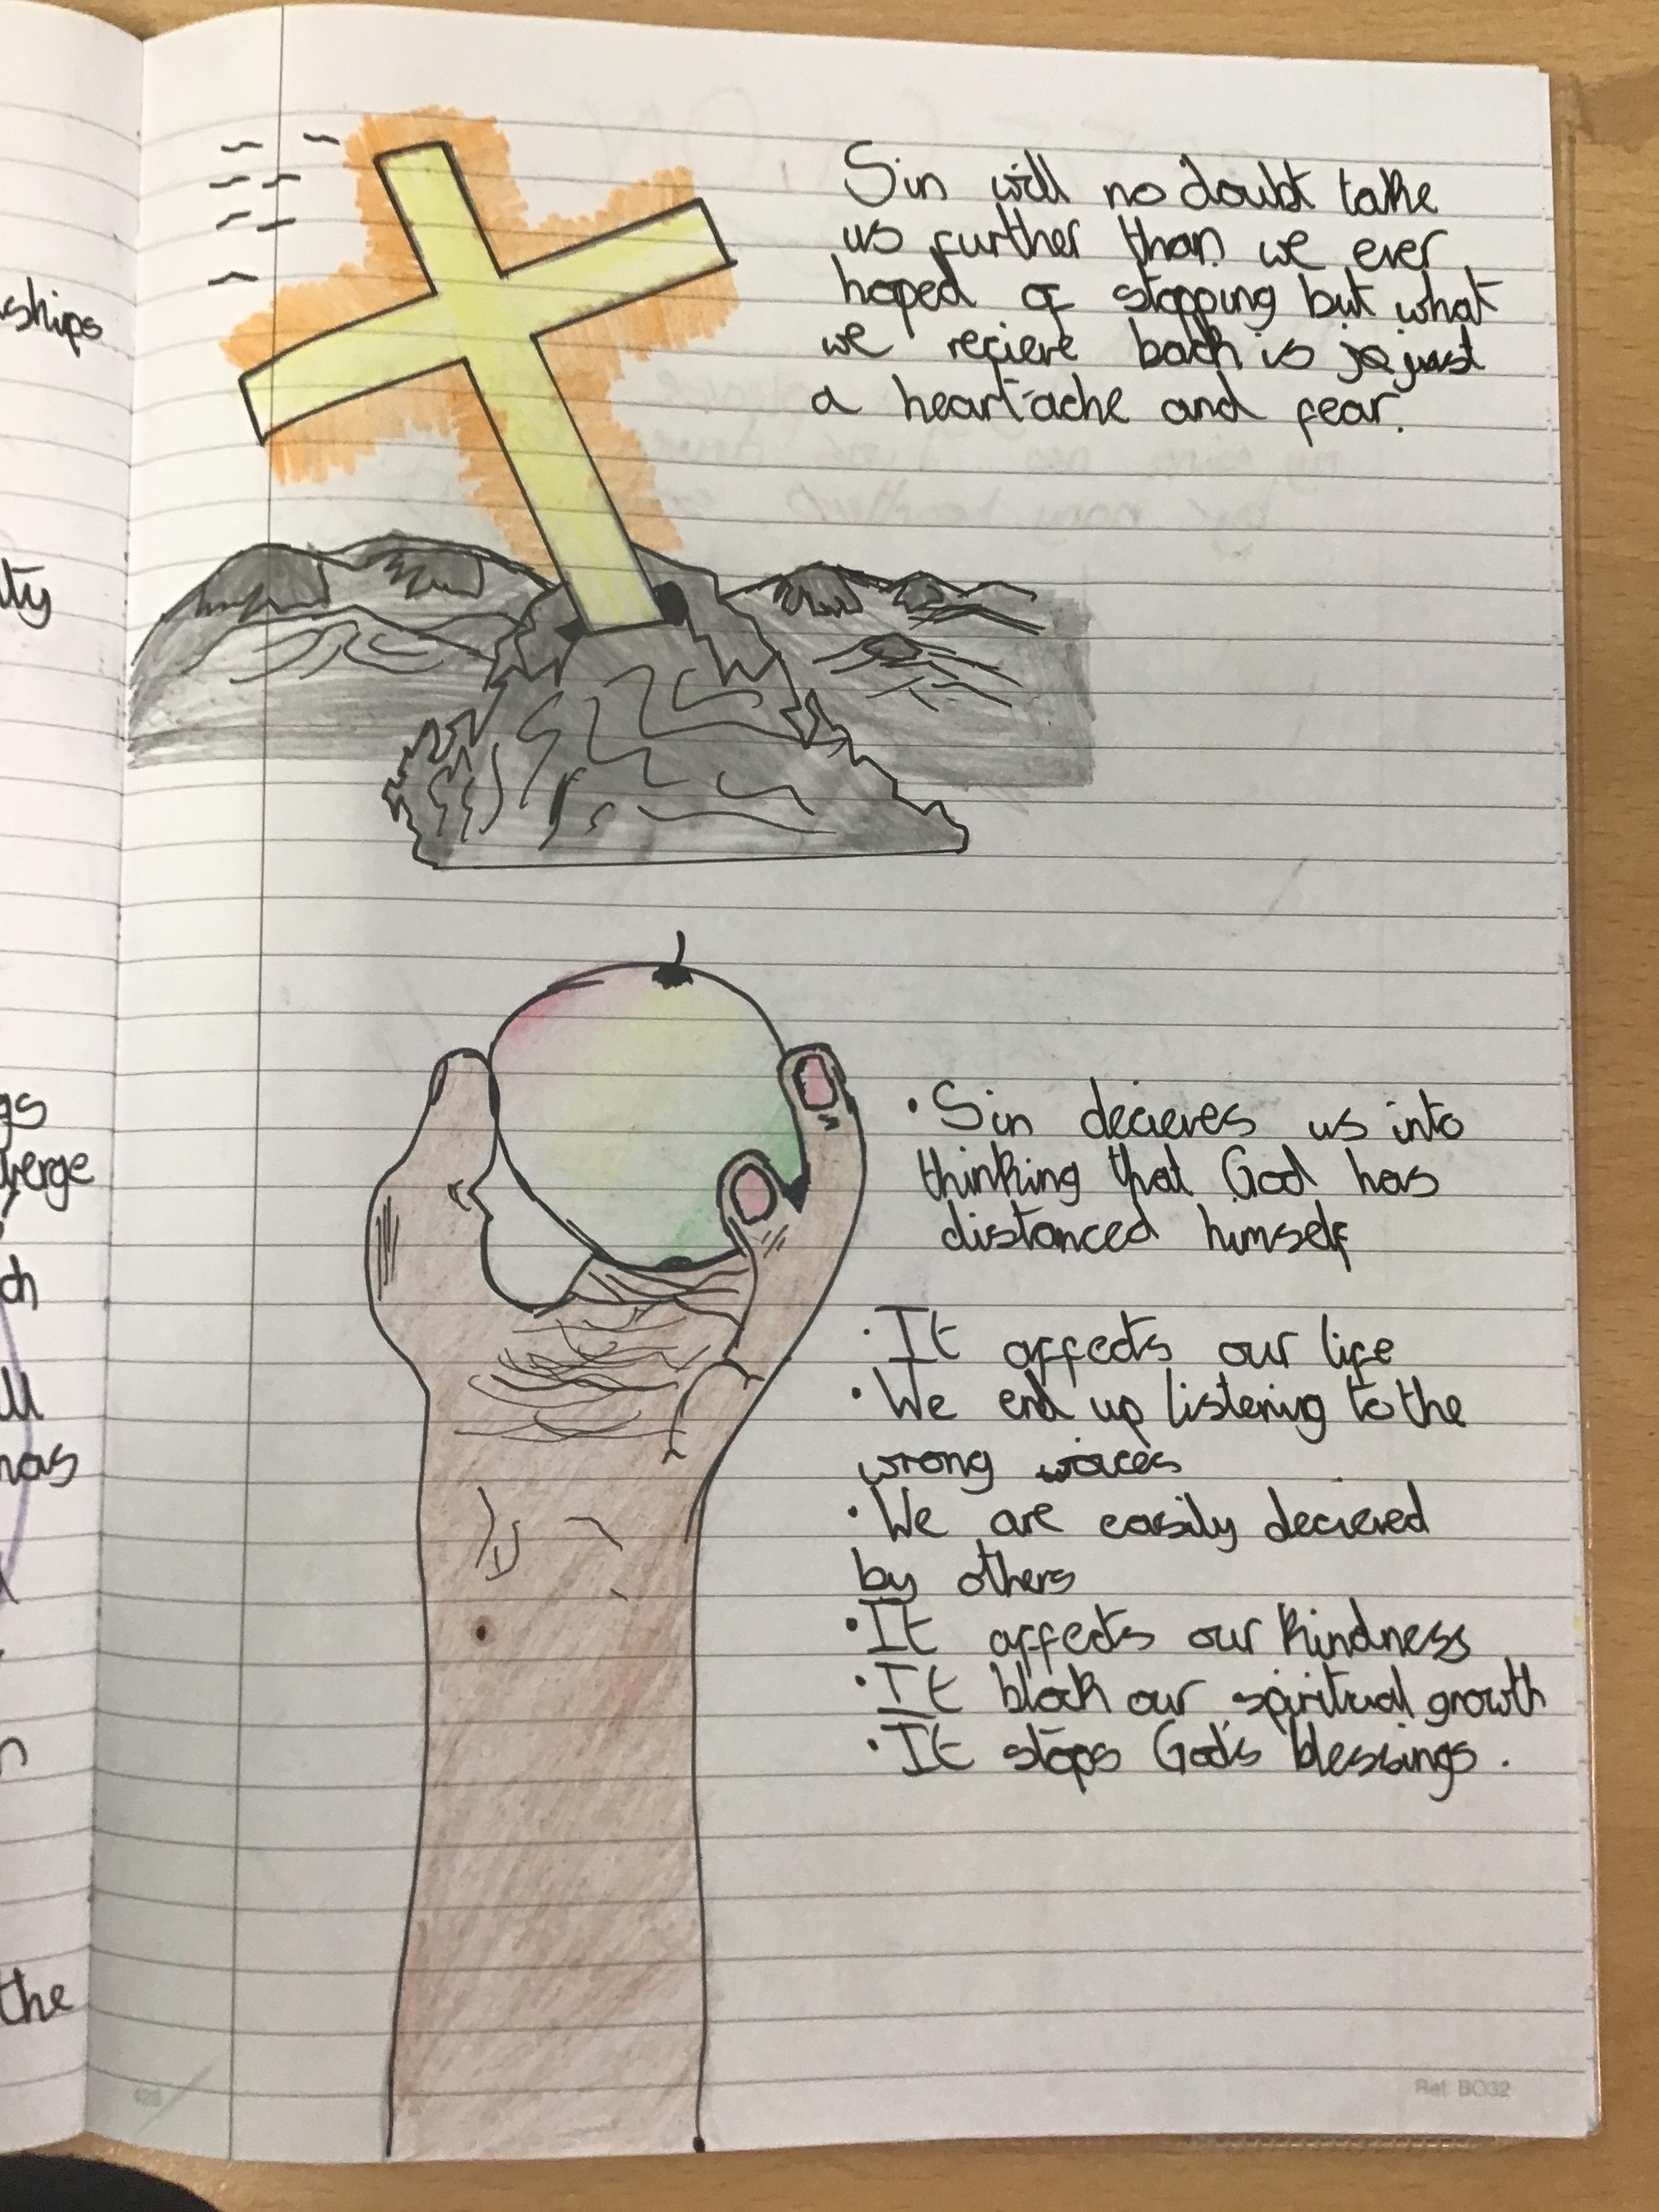 ships
ty
gs
verge
ch
ll
has
the
Sin will no doubt take
us further than we ever
hoped of stopping but what
we recieve back is just
a heart-ache and fear.
• Sin decieves us into
thinking that God has
distanced himself
• It affects our life
• We end up listening to the
wrong voices
• We are easily decieved
by others
• It affects our kindness
• It block our spiritual growth
• It stops God's blessings.
Ref BO32